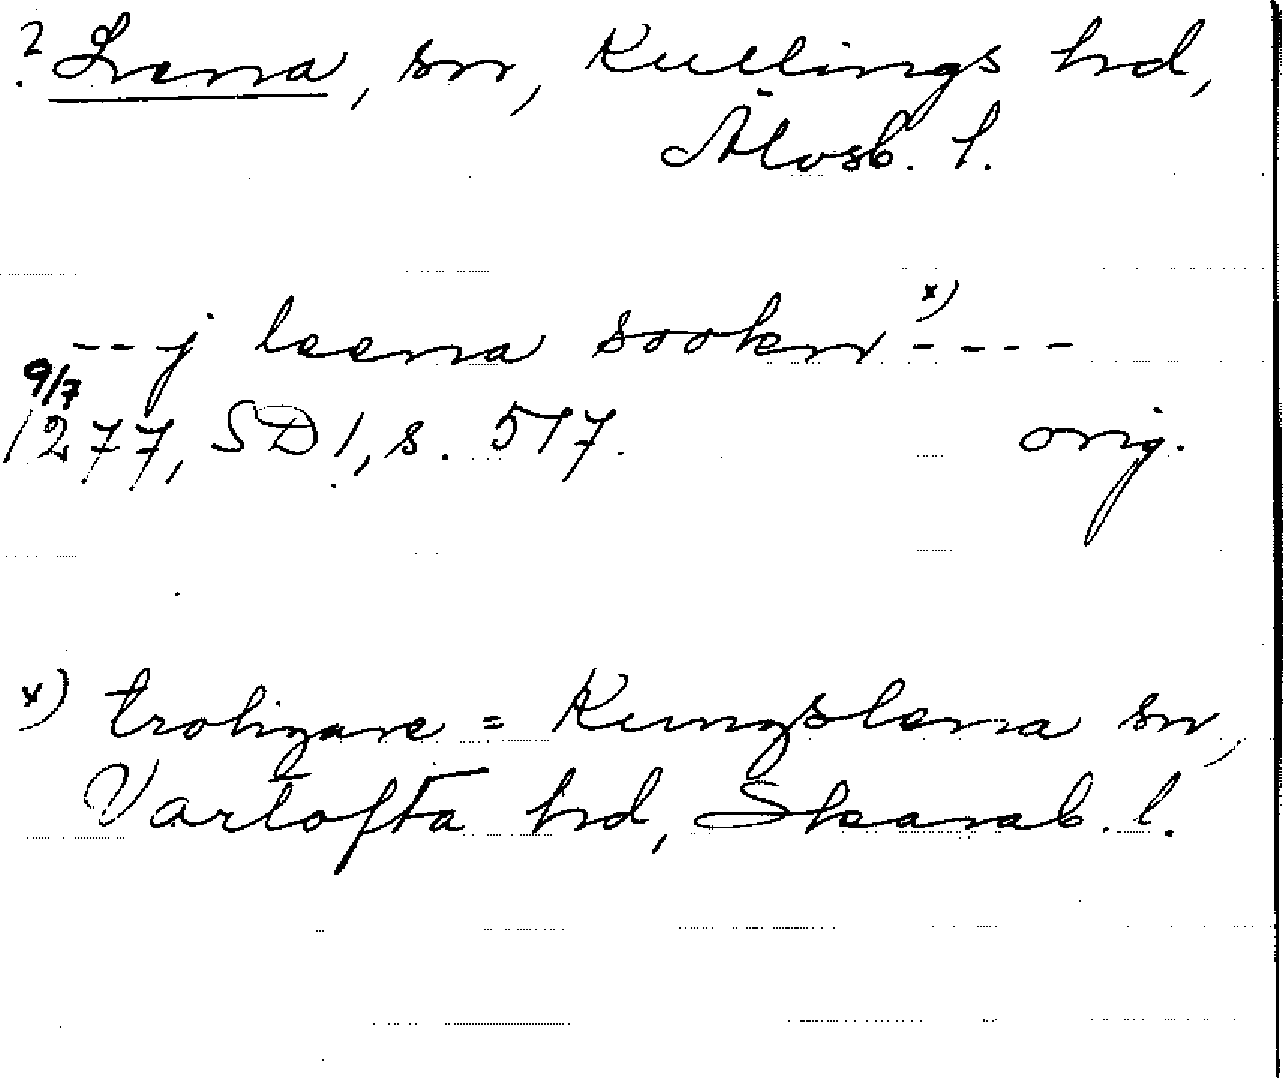 ? Lena, sn, Kullings hd,
Älvsb. l.
-- j leena sookn x) ----
9/7
1277, SD 1, s. 517. orig.
x) troligare = Kungslena sn,
Vartofta hd, Skarab. l.